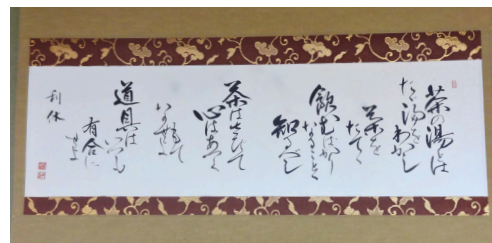 茶の湯とは
たゝ湯をわかし
茶を
たてゝ
飲むはかり
なることと
知るべし
茶はさびて
心はあつく
道具は
いつも
有合に
利休